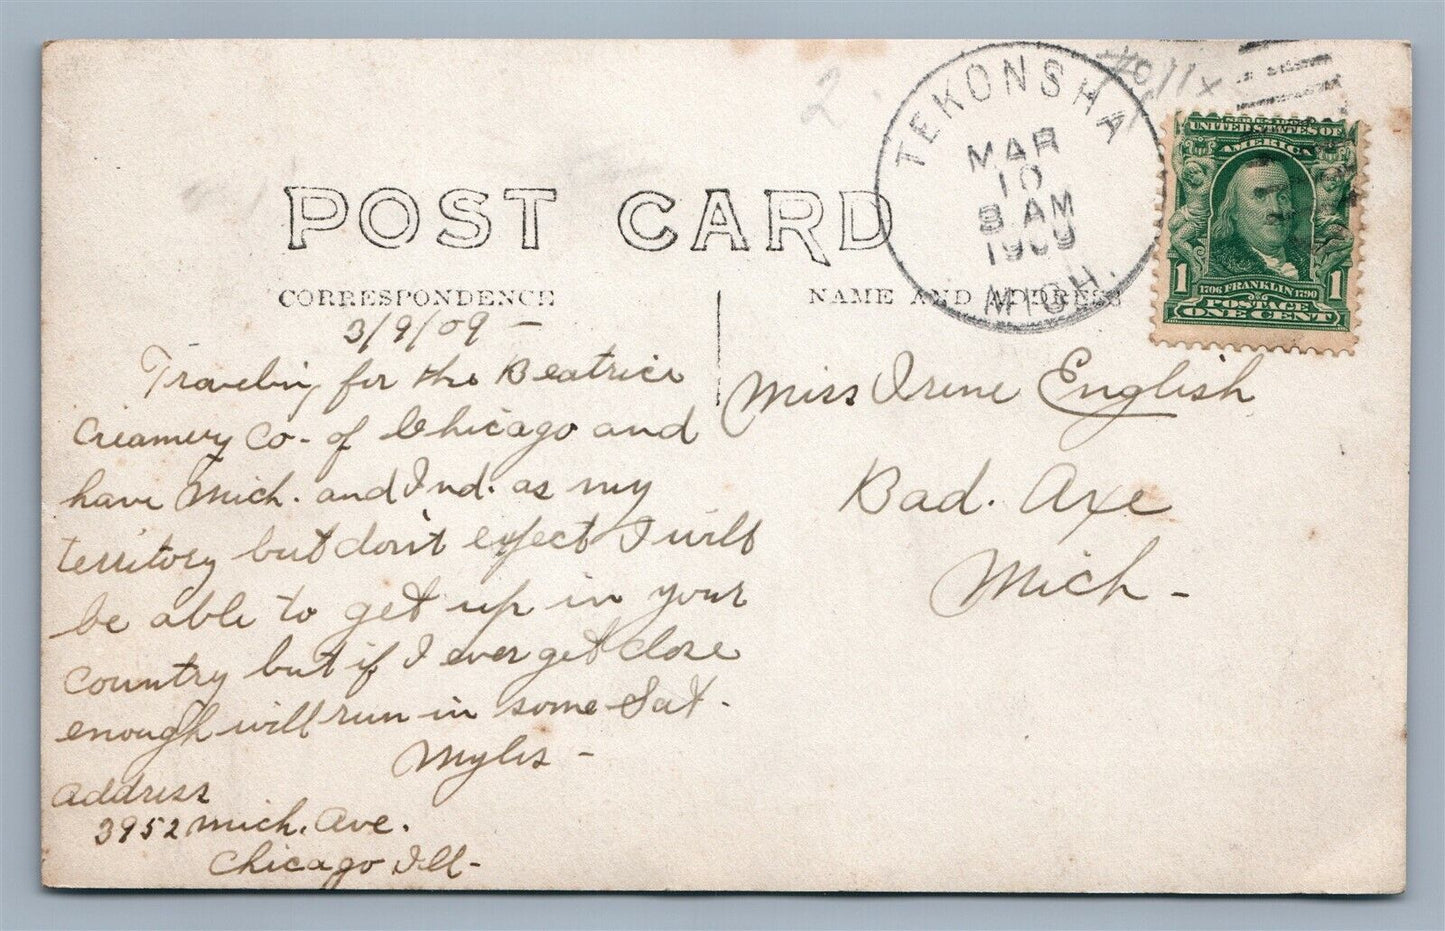 TEKONSHA
MAR
10
8 AM
1909
MICH.
SERIES 1902
UNITED STATES OF
AMERICA
1 1
1706 FRANKLIN 1790
POSTAGE
ONE CENT
POST CARD
CORRESPONDENCE
NAME AND ADDRESS
3/9/09 -
Traveling for the Beatrice
Creamery Co- of Chicago and
have Mich. and Ind. as my
territory but don't expect I will
be able to get up in your
country but if I ever get close
enough will run in some Sat.
Myles -
Address
3952 Mich. Ave.
Chicago Ill-
Miss Irene English
Bad. Axe
Mich -
2.